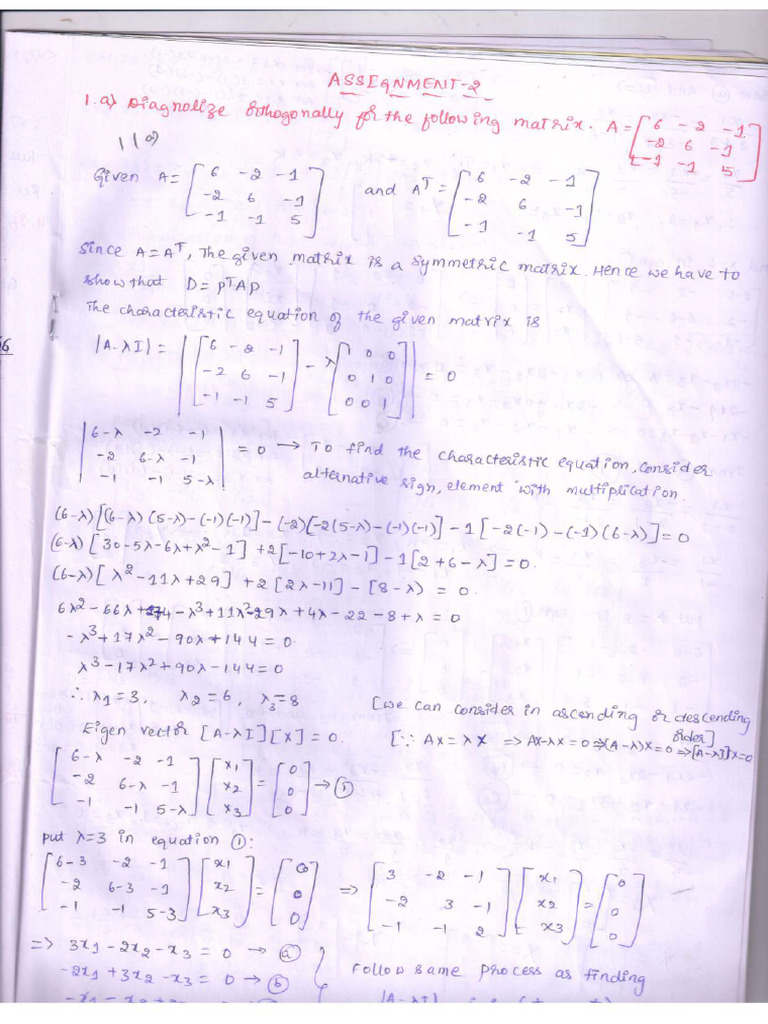 ASSIGNMENT-2
1.a) Diagnolize orthogonally for the following matrix. A = [6 -2 -1
-2 6 -1
-1 -1 5]
1(a)
Given A = [6 -2 -1
-2 6 -1
-1 -1 5] and Aᵀ = [6 -2 -1
-2 6 -1
-1 -1 5]
Since A=Aᵀ, The given matrix is a symmetric matrix. Hence we have to
show that D = PᵀAP
The characteristic equation of the given matrix is
|A-λI| = |[6 -2 -1
-2 6 -1
-1 -1 5] - λ[1 0 0
0 1 0
0 0 1]| = 0
|6-λ -2 -1
-2 6-λ -1
-1 -1 5-λ| = 0 → To find the characteristic equation, consider
alternative sign, element with multiplication.
(6-λ)[(6-λ)(5-λ)-(-1)(-1)]-(-2)[-2(5-λ)-(-1)(-1)]-1[-2(-1)-(-1)(6-λ)]=0
(6-λ)[30-5λ-6λ+λ²-1]+2[-10+2λ-1]-1[2+6-λ]=0.
(6-λ)[λ²-11λ+29]+2[2λ-11]-[8-λ)=0.
6λ²-66λ+174-λ³+11λ²-29λ+4λ-22-8+λ=0
-λ³+17λ²-90λ+144=0.
λ³-17λ²+90λ-144=0
∴λ1=3, λ2=6, λ3=8 [we can consider in ascending or descending
order]
Eigen vector [A-λI][X]=0. [∵ AX=λX ⇒AX-λX=0⇒(A-λ)X=0⇒[A-λI]X=0
[6-λ -2 -1
-2 6-λ -1
-1 -1 5-λ] [x1
x2
x3] = [0
0
0] → ①
put λ=3 in equation ①:
[6-3 -2 -1
-2 6-3 -1
-1 -1 5-3] [x1
x2
x3] = [0
0
0] ⇒ [3 -2 -1
-2 3 -1
-1 -1 2] [x1
x2
x3] = [0
0
0]
⇒ 3x1-2x2-x3=0 → ⓐ
-2x1+3x2-x3=0 → ⓑ
Follow same process as finding